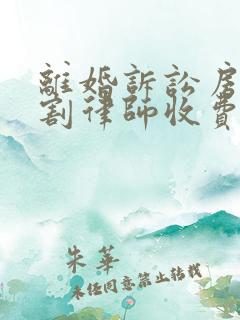 離婚訴訟房
割律師收費
朱華
未经同意禁止转载